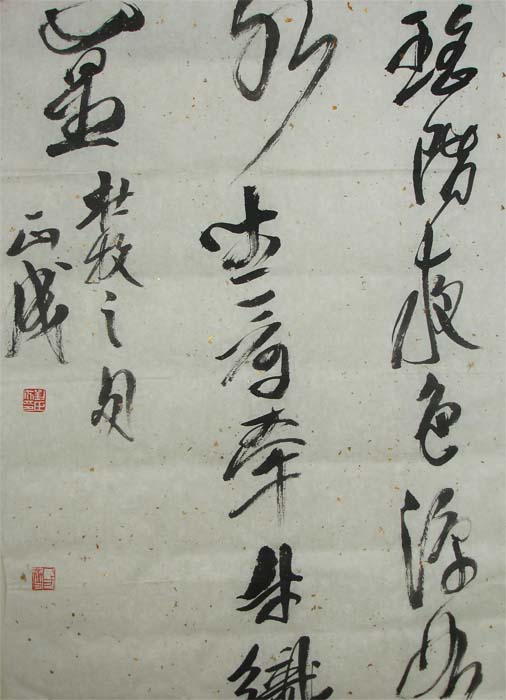 瑶階夜色涼如
水坐看牵牛織
女星
杜牧之句
正成